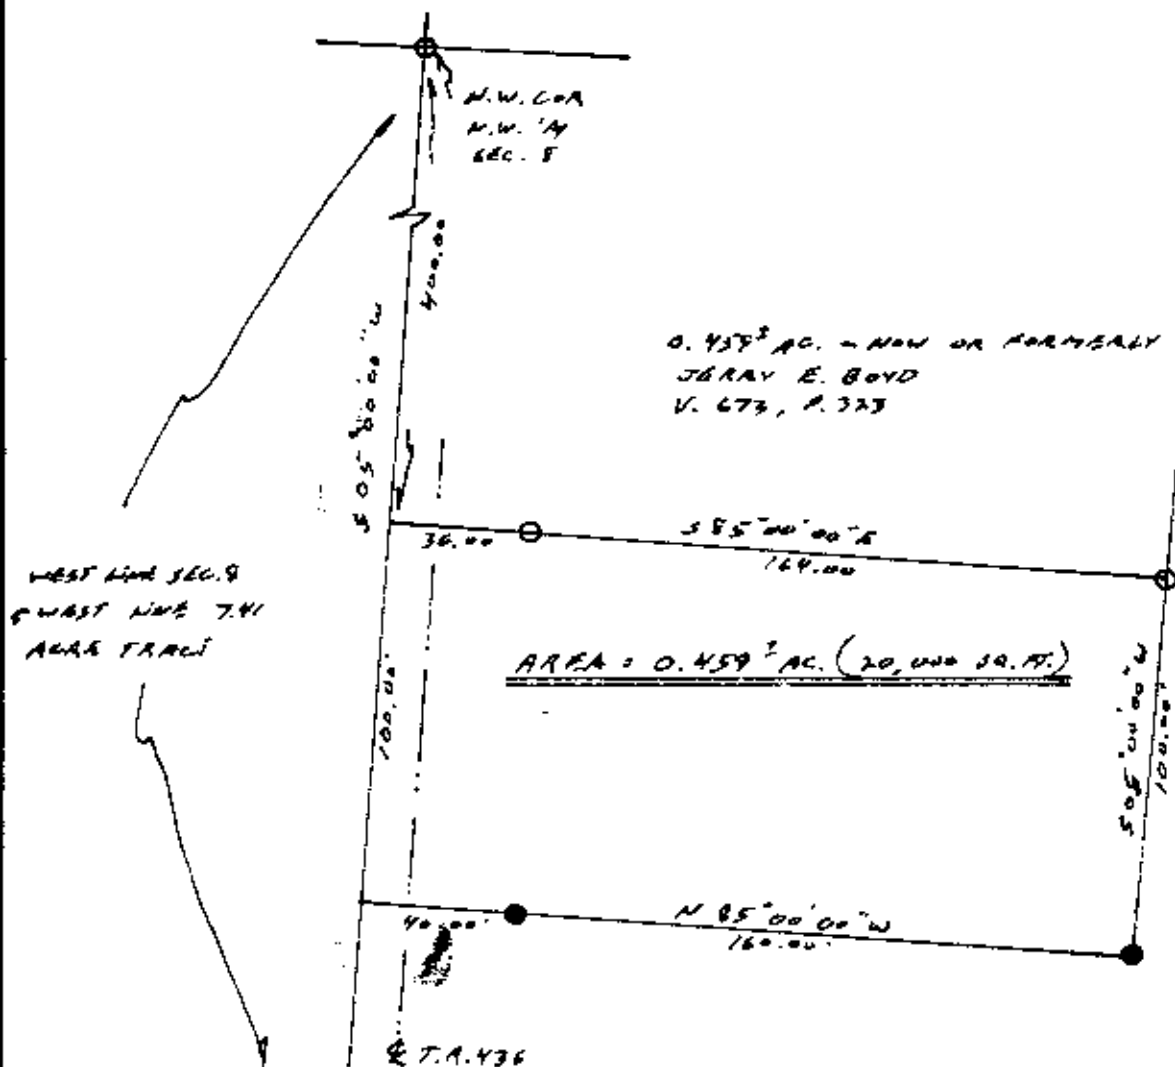 N.W. COR
N.W. 1/4
SEC. 8
400.00
S 05°00'00" W
0.459± AC. - NOW OR FORMERLY
JERRY E. BOYD
V. 673, P. 323
36.00
S 85°00'00" E
164.00
WEST LINE SEC. 8
& WEST LINE 7.41
ACRE TRACT
AREA = 0.459± AC. (20,000 SQ. FT.)
100.00'
S 05°00'00" W
100.00'
40.00'
N 85°00'00" W
160.00'
℄ T.R. 436